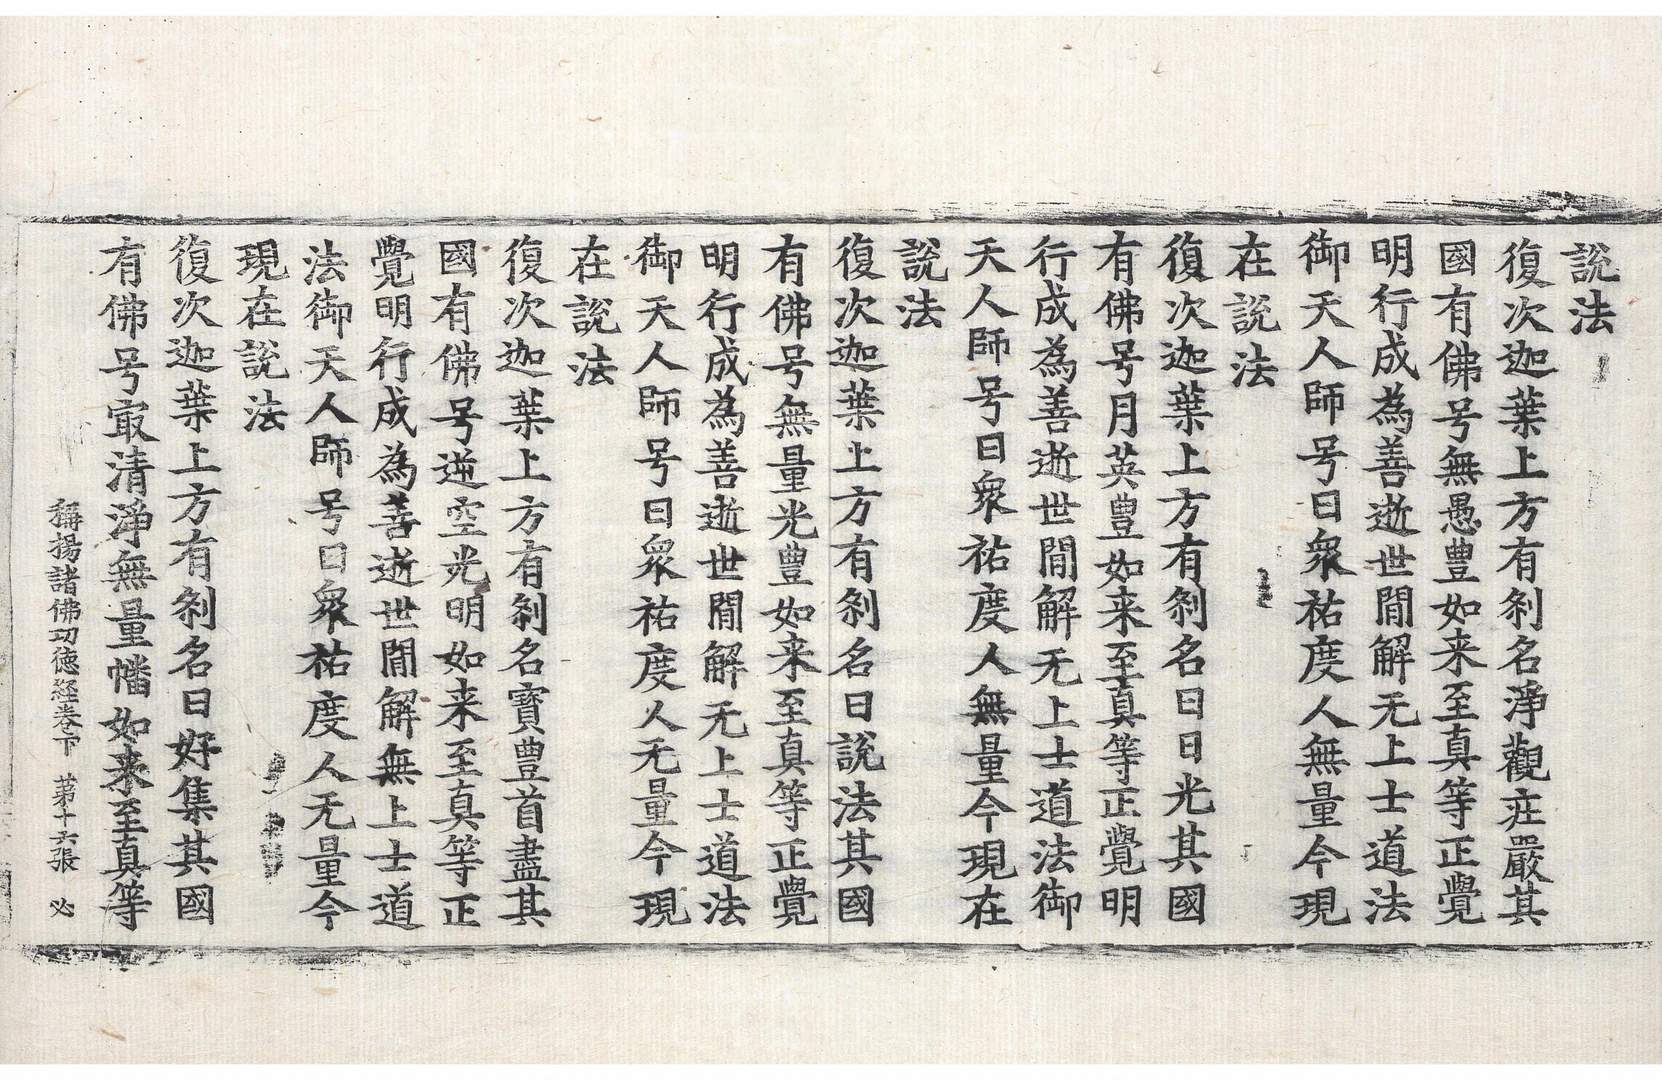 說法
復次迦葉上方有刹名淨觀庄嚴其
國有佛号無愚豊如来至真等正覺
明行成為善逝世間解无上士道法
御天人師号曰衆祐度人無量今現
在說法
復次迦葉上方有刹名曰日光其國
有佛号月英豊如来至真等正覺明
行成為善逝世間解无上士道法御
天人師号曰衆祐度人無量今現在
說法
復次迦葉上方有刹名曰說法其國
有佛号無量光豊如来至真等正覺
明行成為善逝世間解无上士道法
御天人師号曰衆祐度人无量今現
在說法
復次迦葉上方有刹名寳豊首盡其
國有佛号逆空光明如来至真等正
覺明行成為善逝世間解無上士道
法御天人師号曰衆祐度人无量今
現在說法
復次迦葉上方有刹名曰好集其國
有佛号㝡清淨無量幡如来至真等
稱揚諸佛功徳經卷下 苐十六張 必